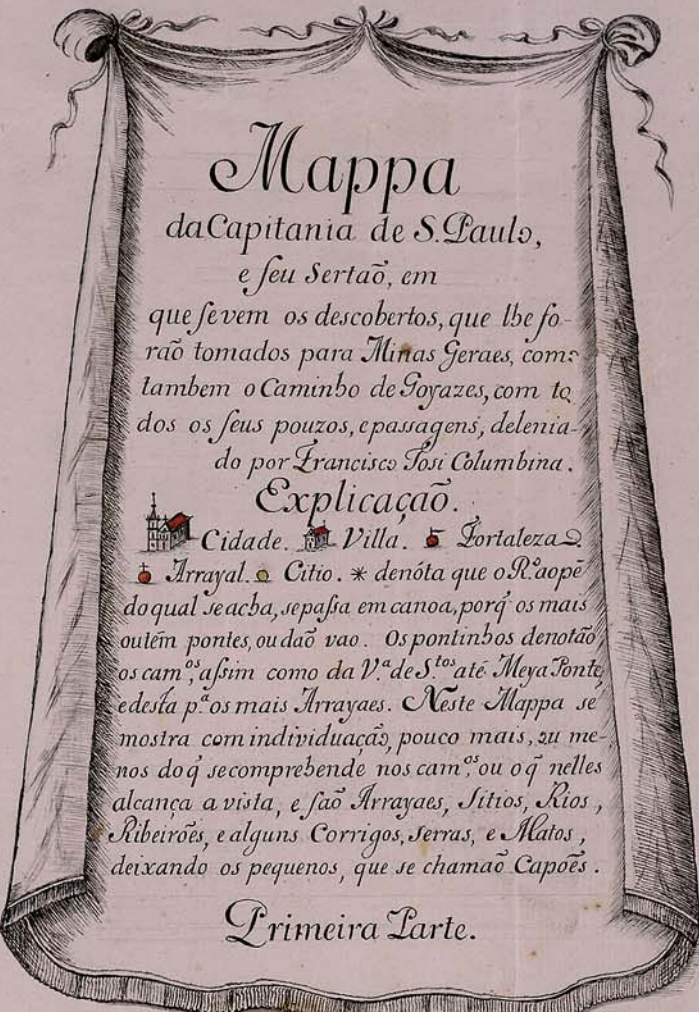 Mappa
da Capitania de S. Paulo,
e seu Sertaõ, em
que se vem os descobertos, que lhe fo-
raõ tomados para Minas Geraes, como
tambem o Caminho de Goyazes, com to
dos os seus pouzos, e passagens, delenia-
do por Francisco Tosi Columbina.
Explicaçaõ.
Cidade. Villa. Fortaleza
Arrayal. Citio. * denóta que o R.º ao pé
do qual se acha, se passa em canoa, porq̃ os mais
ou tém pontes, ou daõ vao. Os pontinhos denotaõ
os cam.ºs, assim como da V.ª de S.tos até Meya Ponte,
e desta p.ª os mais Arrayaes. Neste Mappa se
mostra com individuaçaõ, pouco mais, ou me-
nos do q̃ se comprehende nos cam.ºs, ou o q̃ nelles
alcança a vista, e saõ Arrayaes, Sitios, Rios,
Ribeirões, e alguns Corrigos, serras, e Matos,
deixando os pequenos, que se chamaõ Capoẽs.
Primeira Parte.